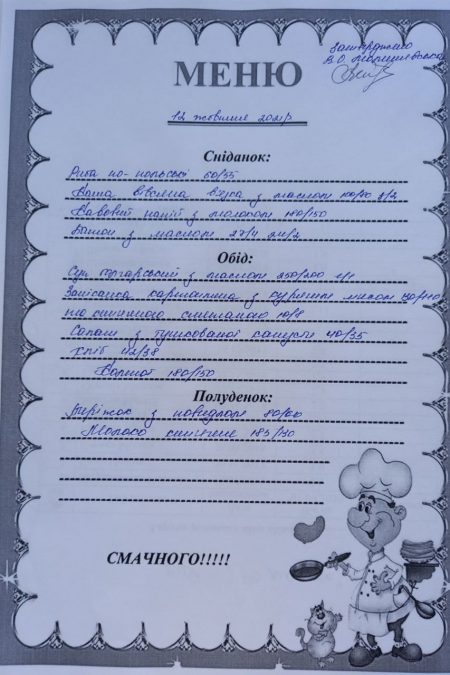 Затверджено
В.О.
МЕНЮ
12 жовтня 2021р
Сніданок:
Риба по-польські 60/55
Каша вівсяна в'язка з маслом
Кавовий напій з молоком 180/150
Батон з маслом 27/4 24/2
Обід:
Суп болгарський з маслом 250/200 1/1
Запіканка картопляна з курячим м'ясом
та сметаною 10/8
Салат з тушкованої капусти 40/35
Хліб 42/38
Компот 180/150
Полуденок:
Пиріжок з повидлом 80/60
Молоко кип'ячене 185/150
СМАЧНОГО!!!!!